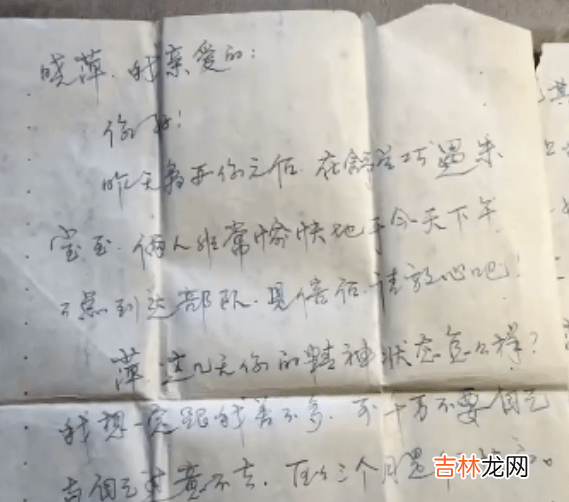 晓萍,我亲爱的:
你好!
昨天离开你之后,在餐车巧遇朱
宝玉,俩人非常愉快地于今天下午
2点到达部队,见信后,请放心吧!
萍,这几天你的精神状态怎么样?
我想一定跟我差不多,可千万不要自己
与自己过意不去,在三个月
吉林龙网